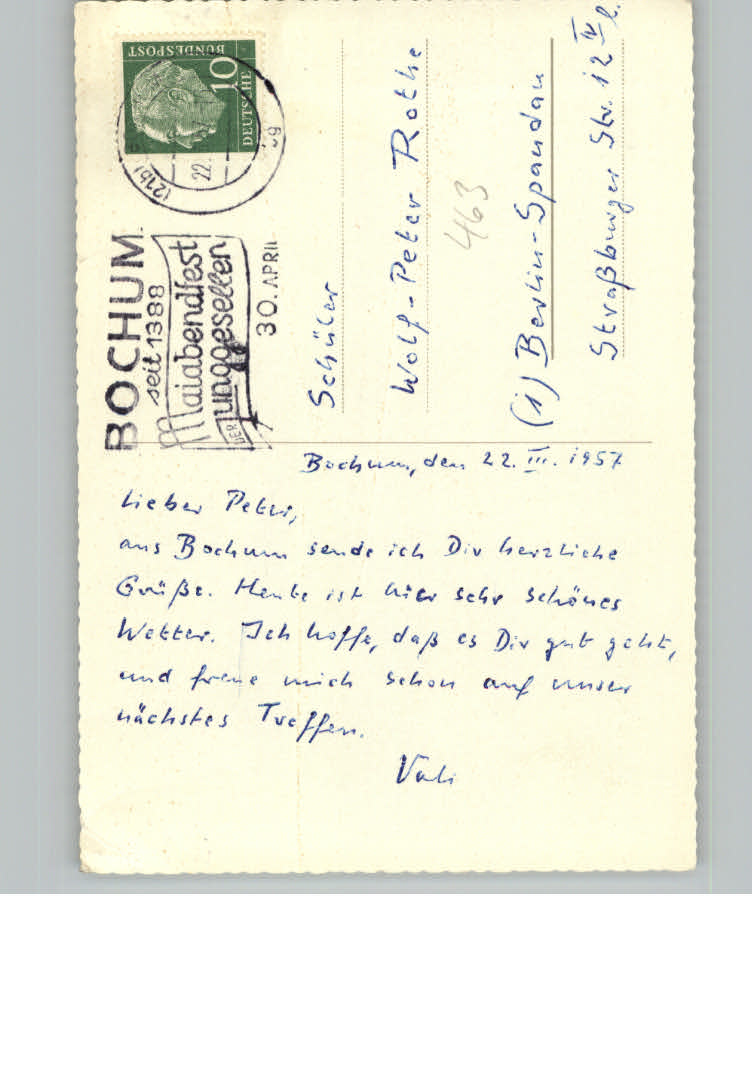 Bochum, den 22. III. 1957
Lieber Peter,
aus Bochum sende ich Dir herzliche
Grüße. Heute ist hier sehr schönes
Wetter. Ich hoffe, daß es Dir gut geht,
und freue mich schon auf unser
nächstes Treffen.
Vati
Schüler
Wolf-Peter Rothe
463
(1) Berlin-Spandau
Straßburger Str. 12 IV l.
DEUTSCHE
BUNDESPOST
10
(21b)
22.
BOCHUM
seit 1388
Maiabendfest
DER Junggesellen
30. APRIL